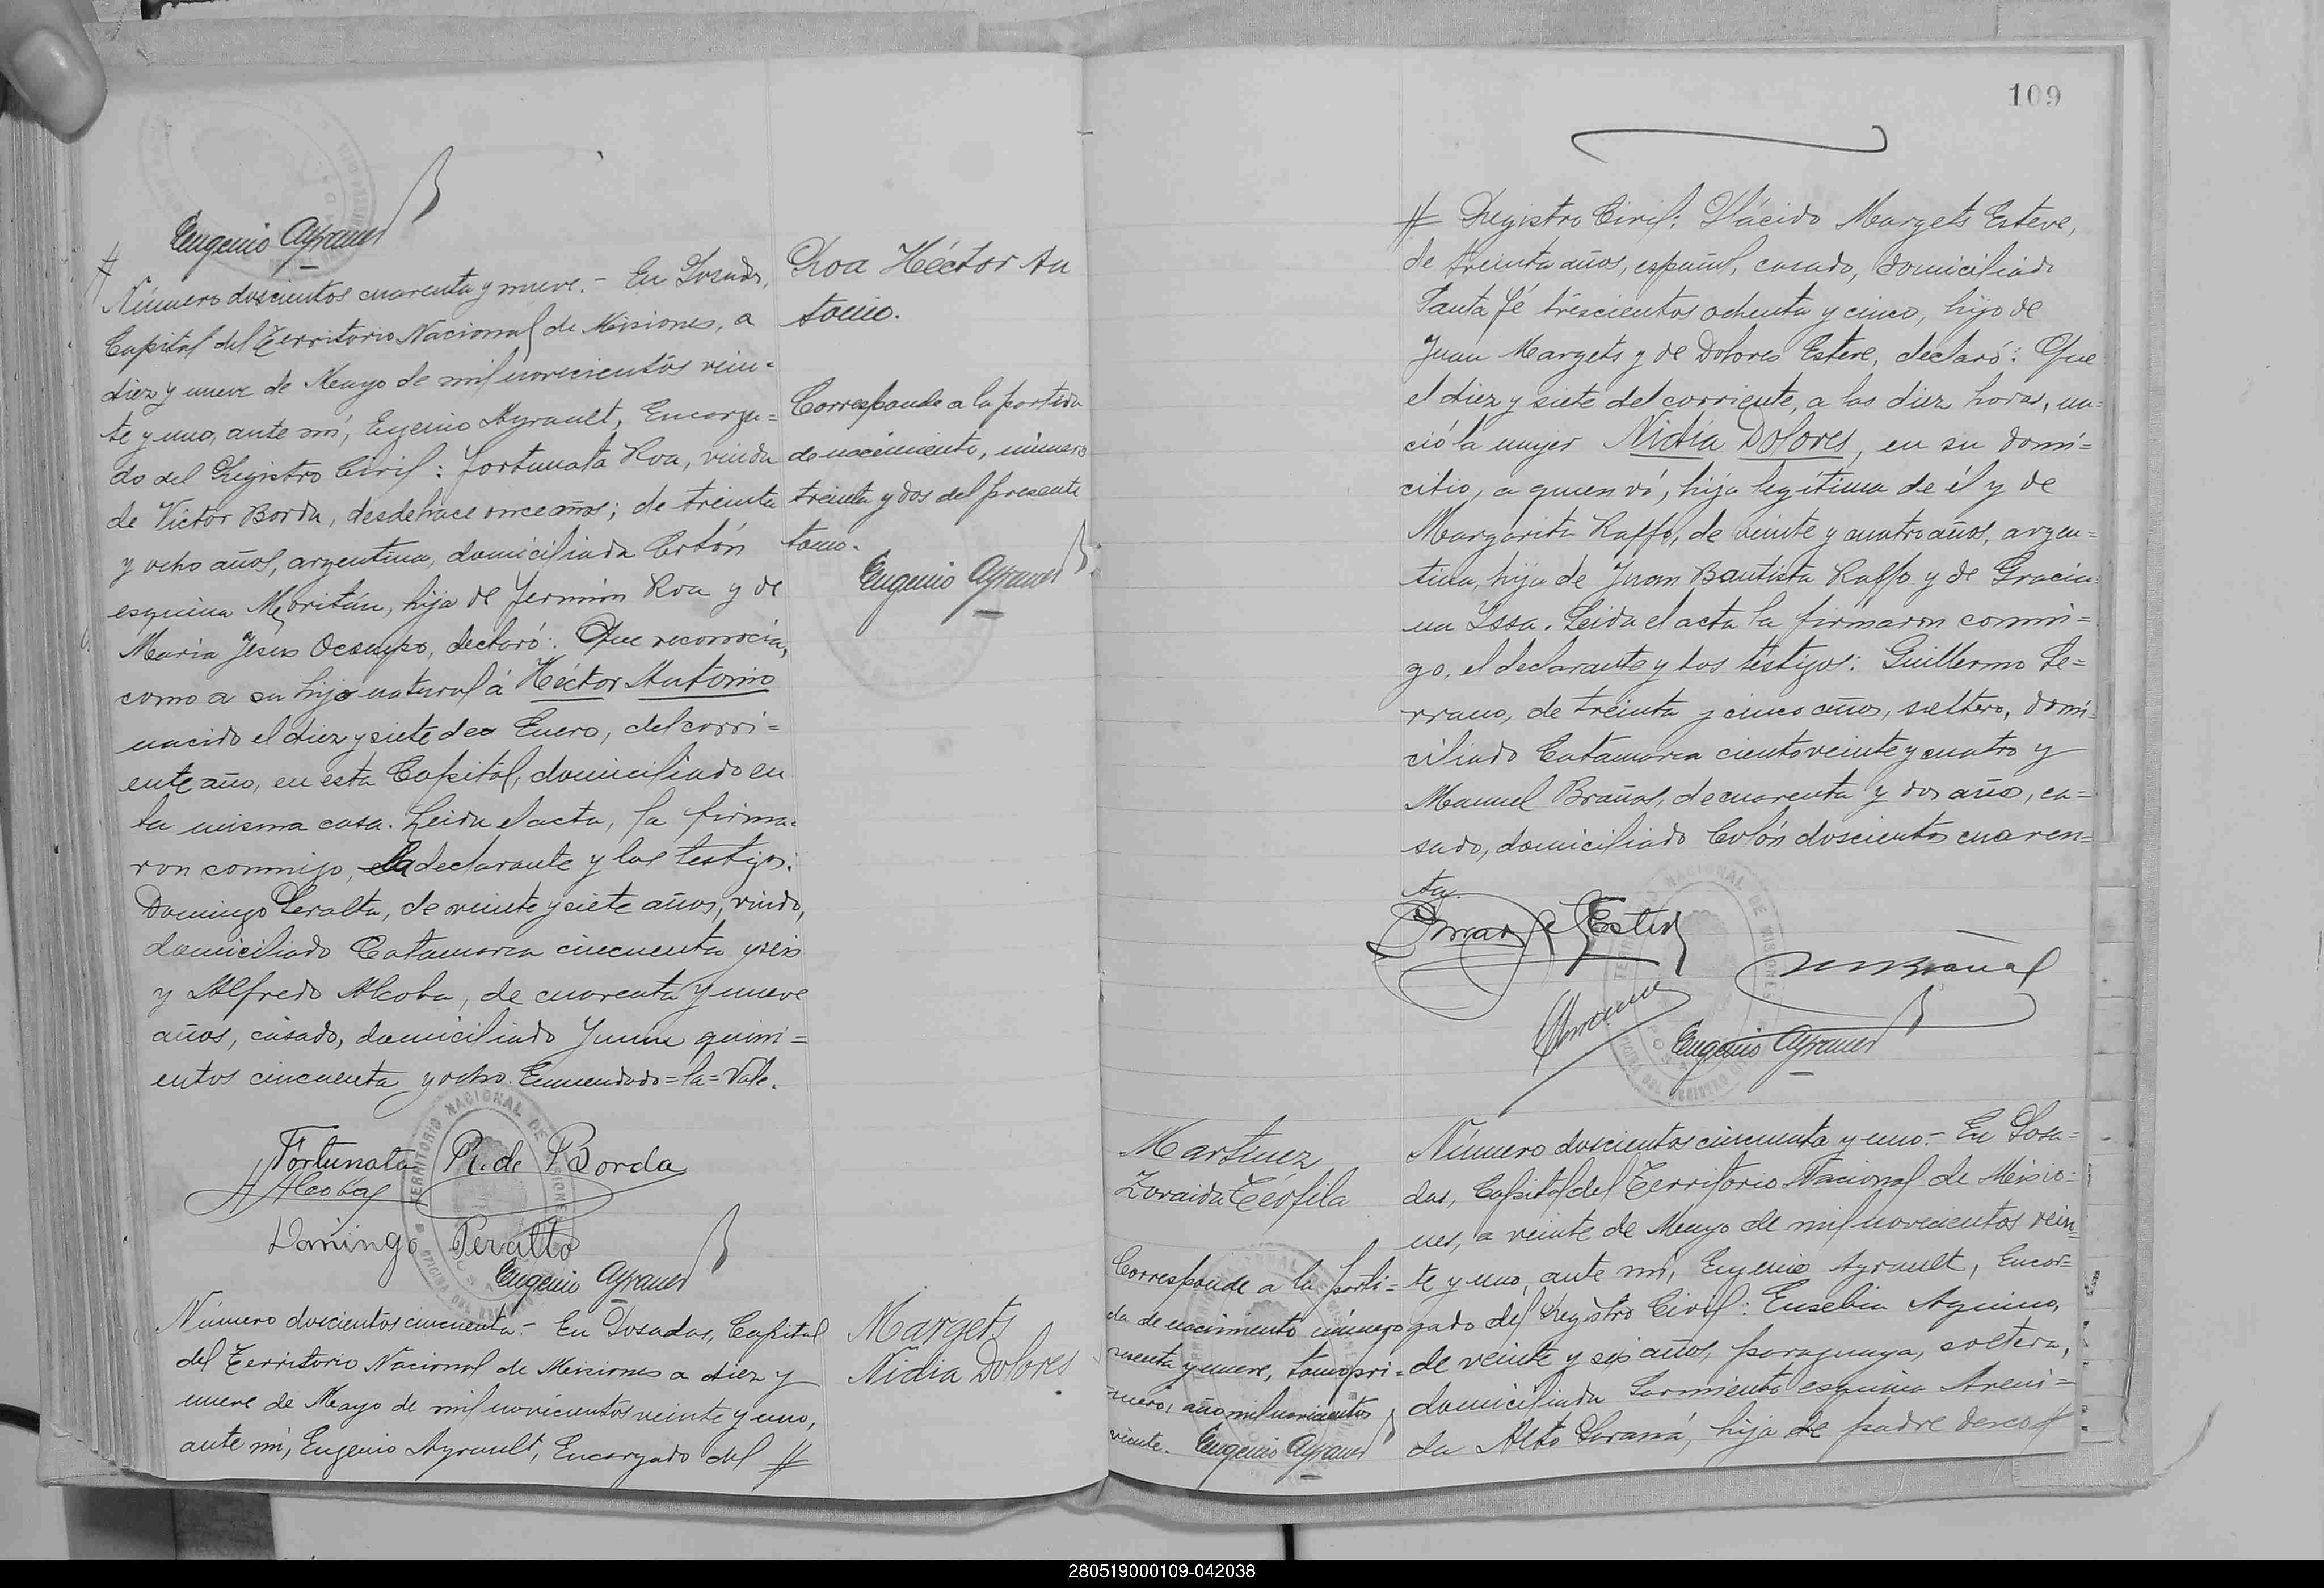 Eugenio Ayrault
#
Número doscientos cuarenta y nueve.- En Posadas,
Capital del Territorio Nacional de Misiones, a
diez y nueve de Mayo de mil novecientos vein=
te y uno, ante mí, Eugenio Ayrault, Encarga=
do del Registro Civil: Fortunata Roa, viuda
de Victor Borda, desde hace once años; de treinta
y ocho años, argentina, domiciliada Colón
esquina Moritán, hija de Fermin Roa y de
María Jesús Ocampo, declaró: Que reconocía,
como a su hijo natural á Héctor Antonio
nacido el diez y siete de Enero, del corri=
ente año, en esta Capital, domiciliado en
la misma casa. Leida el acta, la firma=
ron conmigo, la declarante y los testigos:
Domingo Peralta, de veinte y siete años, viudo,
domiciliado Catamarca cincuenta y seis
y Alfredo Alcoba, de cuarenta y nueve
años, casado, domiciliado Junin quini=
entos cincuenta y ocho. Enmendado=la=Vale.
Fortunata R. de Borda
A Alcoba
Domingo Peralta
Eugenio Ayrault
Roa Héctor An
tonio.
Corresponde a la partida
de nacimiento, número
treinta y dos del presente
tomo.
Eugenio Ayrault
Número doscientos cincuenta.- En Posadas, Capital
del Territorio Nacional de Misiones a diez y
nueve de Mayo de mil novecientos veinte y uno,
ante mí, Eugenio Ayrault, Encargado del #
Margets
Nidia Dolores
109
# Registro Civil: Plácido Margets Esteve,
de treinta años, español, casado, domiciliado
Santa Fé trescientos ochenta y cinco, hijo de
Juan Margets y de Dolores Esteve, declaró: Que
el diez y siete del corriente, a las diez horas, na=
ció la mujer Nidia Dolores, en su domi=
cilio, a quien ví, hija legítima de él y de
Margarita Raffo, de veinte y cuatro años, argen=
tina, hija de Juan Bautista Raffo y de Gracia=
na Issa. Leida el acta la firmaron conmi=
go, el declarante y los testigos: Guillermo Se=
rrano, de treinta y cinco años, soltero, domi=
ciliado Catamarca ciento veinte y cuatro y
Manuel Brañas, de cuarenta y dos años, ca=
sado, domiciliado Colón doscientos cuaren=
ta
Eugenio Ayrault
Martinez
Zoraida Teófila
Corresponde a la parti=
da de nacimiento número
y nueve, tomo pri=
mero, año mil novecientos
veinte. Eugenio Ayrault
Número doscientos cincuenta y uno.- En Posa=
das, Capital del Territorio Nacional de Misio=
nes, a veinte de Mayo de mil novecientos vein=
te y uno, ante mí, Eugenio Ayrault, Encar=
gado del Registro Civil: Eusebia Aquino,
de veinte y seis años, paraguaya, soltera,
domiciliada Sarmiento esquina Aveni=
da Alto Paraná, hija de padre desco#
280519000109-042038